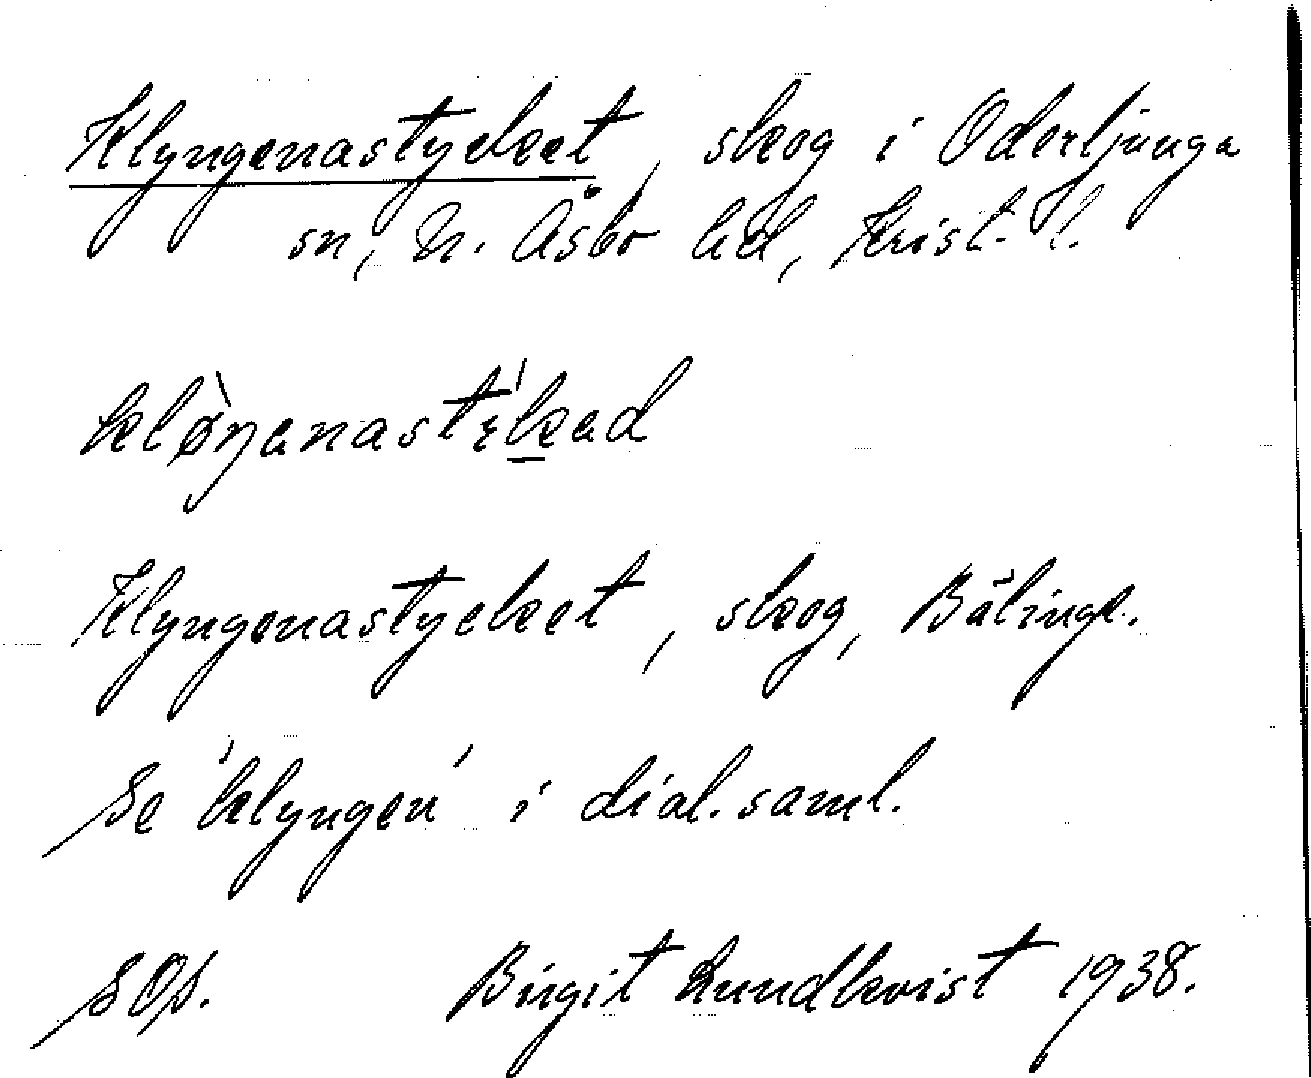 Klyngenastycket, skog i Oderljunga
sn, N. Åsbo hd, Krist. l.
kløŋanastɛkad
Klyngenastycket, skog, Bälinge.
Se 'klyngen' i dial.saml.
SOS. Birgit Lundkvist 1938.